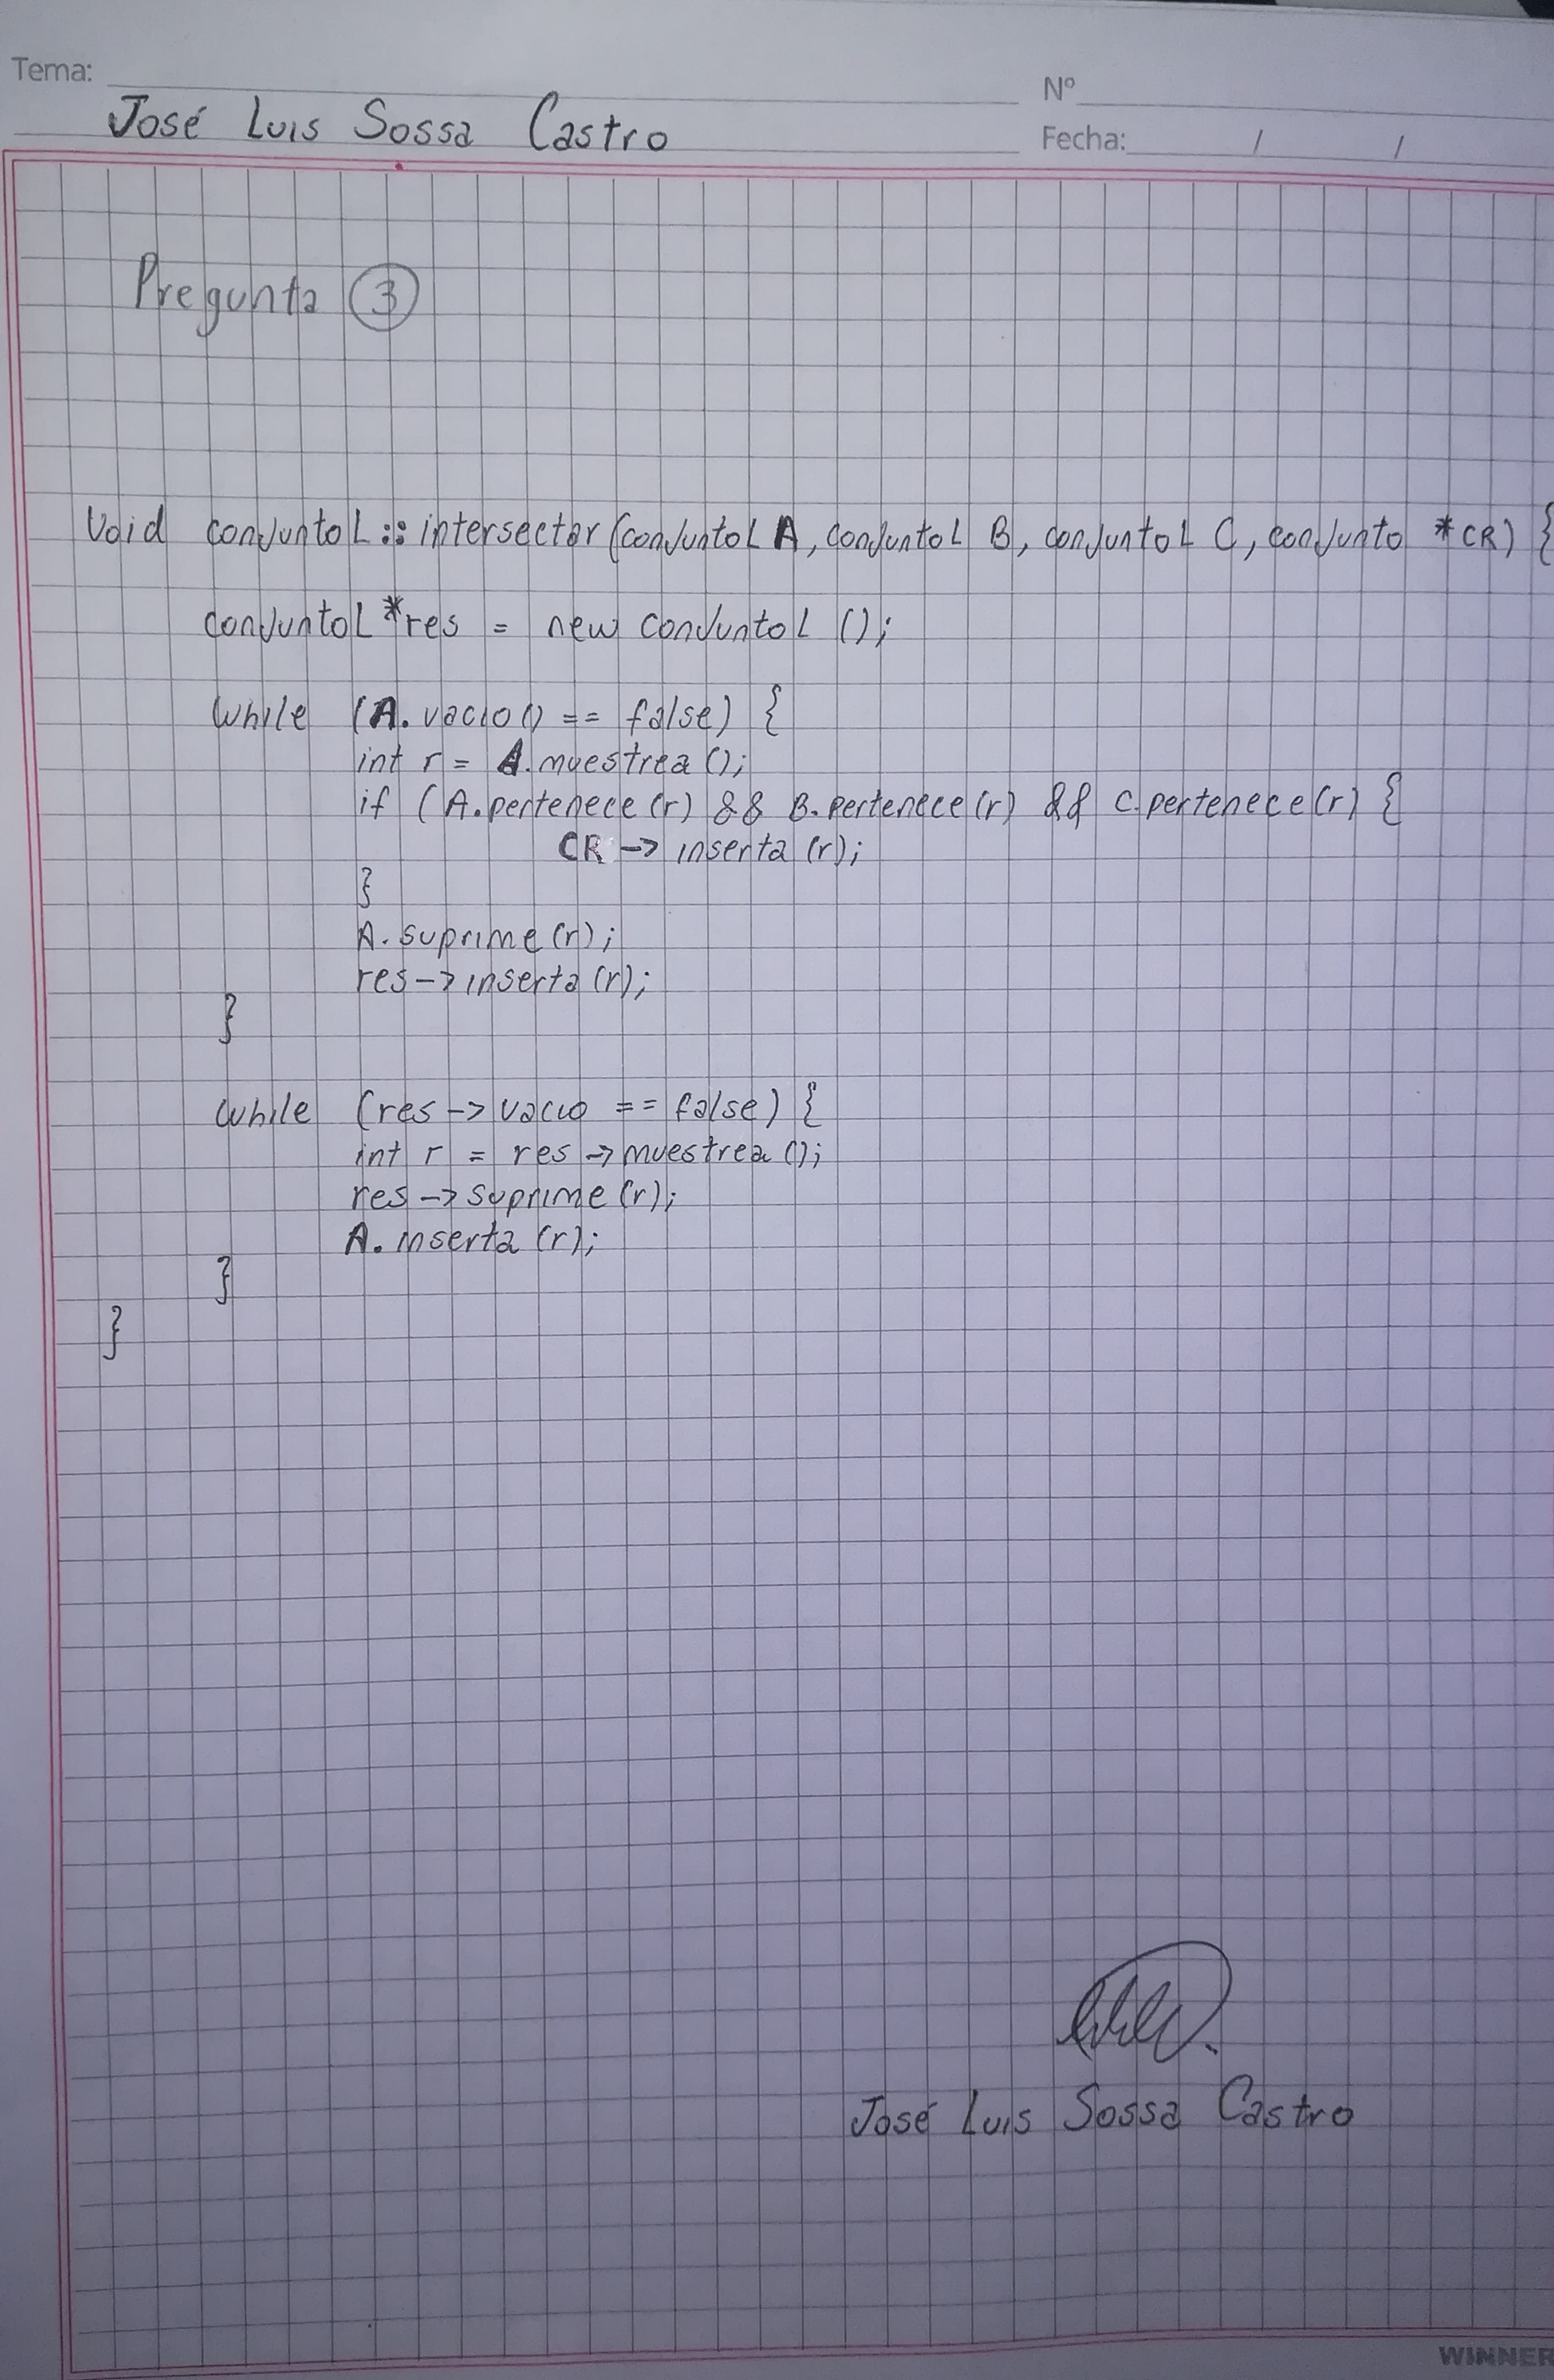 Tema:
Nº
José Luis Sossa Castro
Fecha: / /
Pregunta 3
Void conjuntoL::intersector(conjuntoL A, conjuntoL B, conjuntoL C, conjunto *CR) {
conjuntoL *res = new conjuntoL ();
while (A.vacio() == false) {
int r = A.muestrea();
if (A.pertenece(r) && B.pertenece(r) && C.pertenece(r) {
CR -> inserta (r);
}
A.suprime(r);
res->inserta(r);
}
while (res->vacio == false) {
int r = res->muestrea();
res->suprime(r);
A.inserta(r);
}
}
José Luis Sossa Castro
WINNER